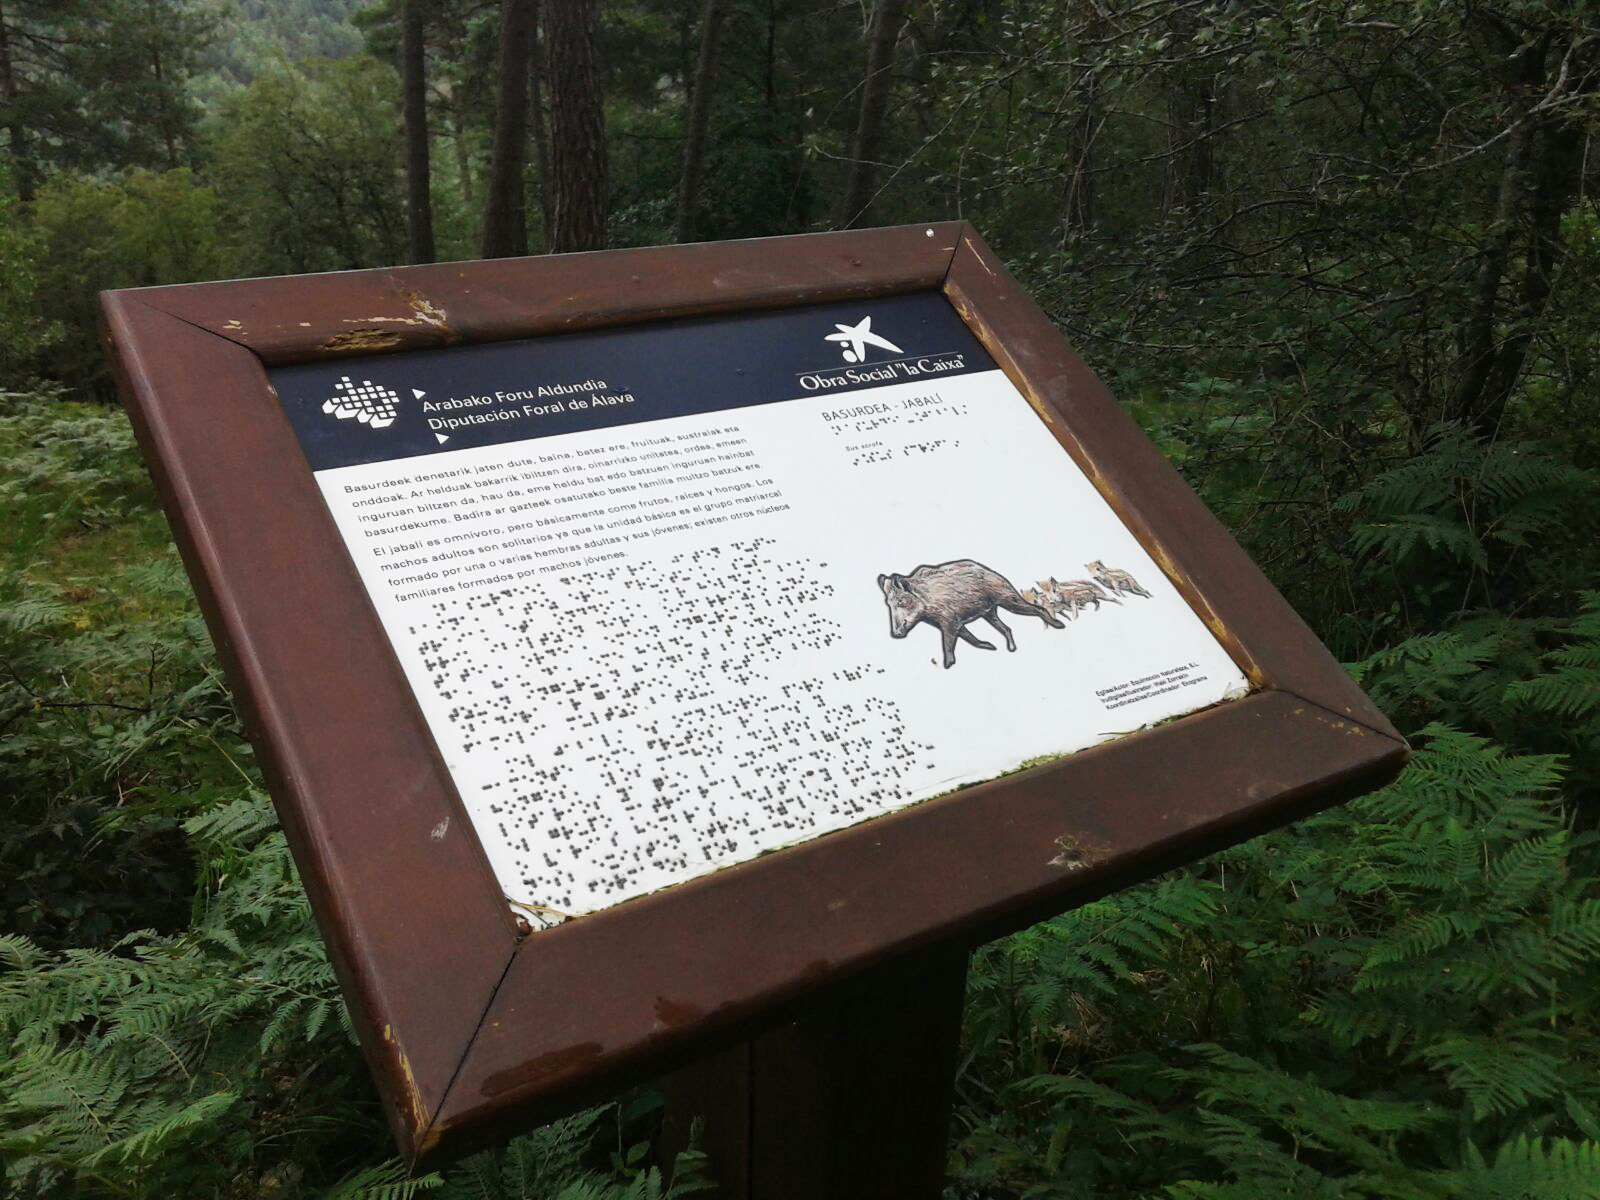 Arabako Foru Aldundia
Diputación Foral de Álava
Obra Social "la Caixa"
BASURDEA - JABALÍ
Sus scrofa
Basurdeek denetarik jaten dute, baina, batez ere, fruituak, sustraiak eta
onddoak. Ar helduak bakarrik ibiltzen dira, oinarrizko unitatea, ordea, emeen
inguruan biltzen da, hau da, eme heldu bat edo batzuen inguruan hainbat
basurdekume. Badira ar gazteek osatutako beste familia multzo batzuk ere.
El jabalí es omnívoro, pero básicamente come frutos, raíces y hongos. Los
machos adultos son solitarios ya que la unidad básica es el grupo matriarcal
formado por una o varias hembras adultas y sus jóvenes; existen otros núcleos
familiares formados por machos jóvenes.
Egilea/Autor: Equinoccio Naturaleza, S.L.
Irudigilea/Ilustrador: Iñaki Zorrakin
Koordinatzailea/Coordinador: Ekograma